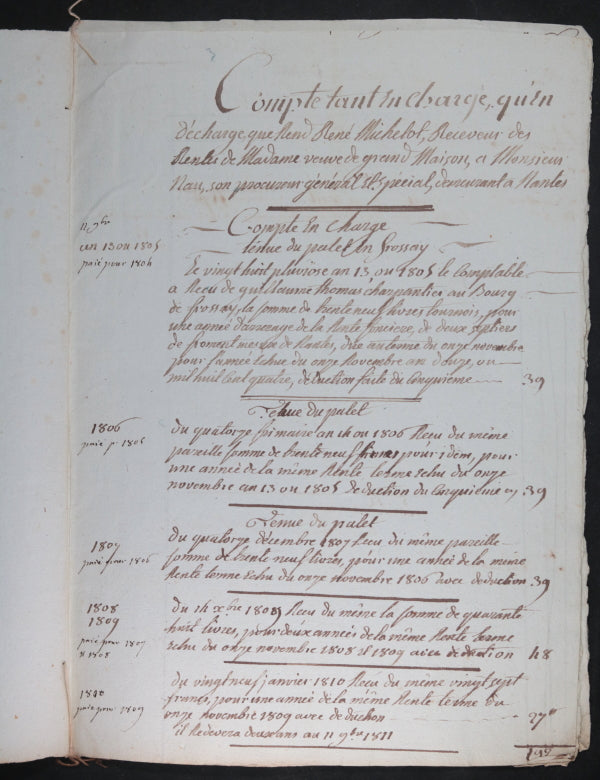 Compte tant En charge, qu'en
décharge, que Rend René Michelot, Receveur des
Rentes de Madame veuve de grand Maison, a Monsieur
Nau, son procureur général Et Spécial, demeurant a Nantes
Compte En charge
tenue du palet En frossay
11 9bre
an 13 ou 1805
paié pour 1804
Le vingt huit pluviose an 13 ou 1805 le Comptable
a Recu de guillaume thomas charpentier au Bourg
de frossay, la somme de trente neuf livres tournois, pour
une année d'arrerage de la Rente fonciere, de deux septiers
de froment mesure de Nantes, due au terme du onze novembre
pour l'année Echue du onze Novembre an douze, ou
mil huit Cent quatre, déduction faite du Cinquieme 39
Tenue du palet
1806
paié p. 1805
du quatorze frimaire an 14 ou 1806 Recu du même
pareille somme de trente neuf livres pour idem, pour
une année de la même Rente terme Echu du onze
novembre an 13 ou 1805 deduction du Cinquieme 39
Tenue du palet
1807
paié pour 1806
du quatorze décembre 1807 Recu du même pareille
somme de trente neuf livres, pour une année de la même
Rente terme Echu du onze novembre 1806 avec deduction 39
1808
1809
paié pour 1807
et 1808
du 14 xbre 1809 Recu du même la somme de quarante
huit livres, pour deux années de la même Rente terme
Echu du onze novembre 1808 et 1809 avec deduction 48
1810
paié pour 1809
du vingt neuf janvier 1810 Recu du même vingt sept
francs, pour une année de la même Rente terme du
onze novembre 1809 avec deduction 27
il Redevera deux ans au 11 9bre 1811
192